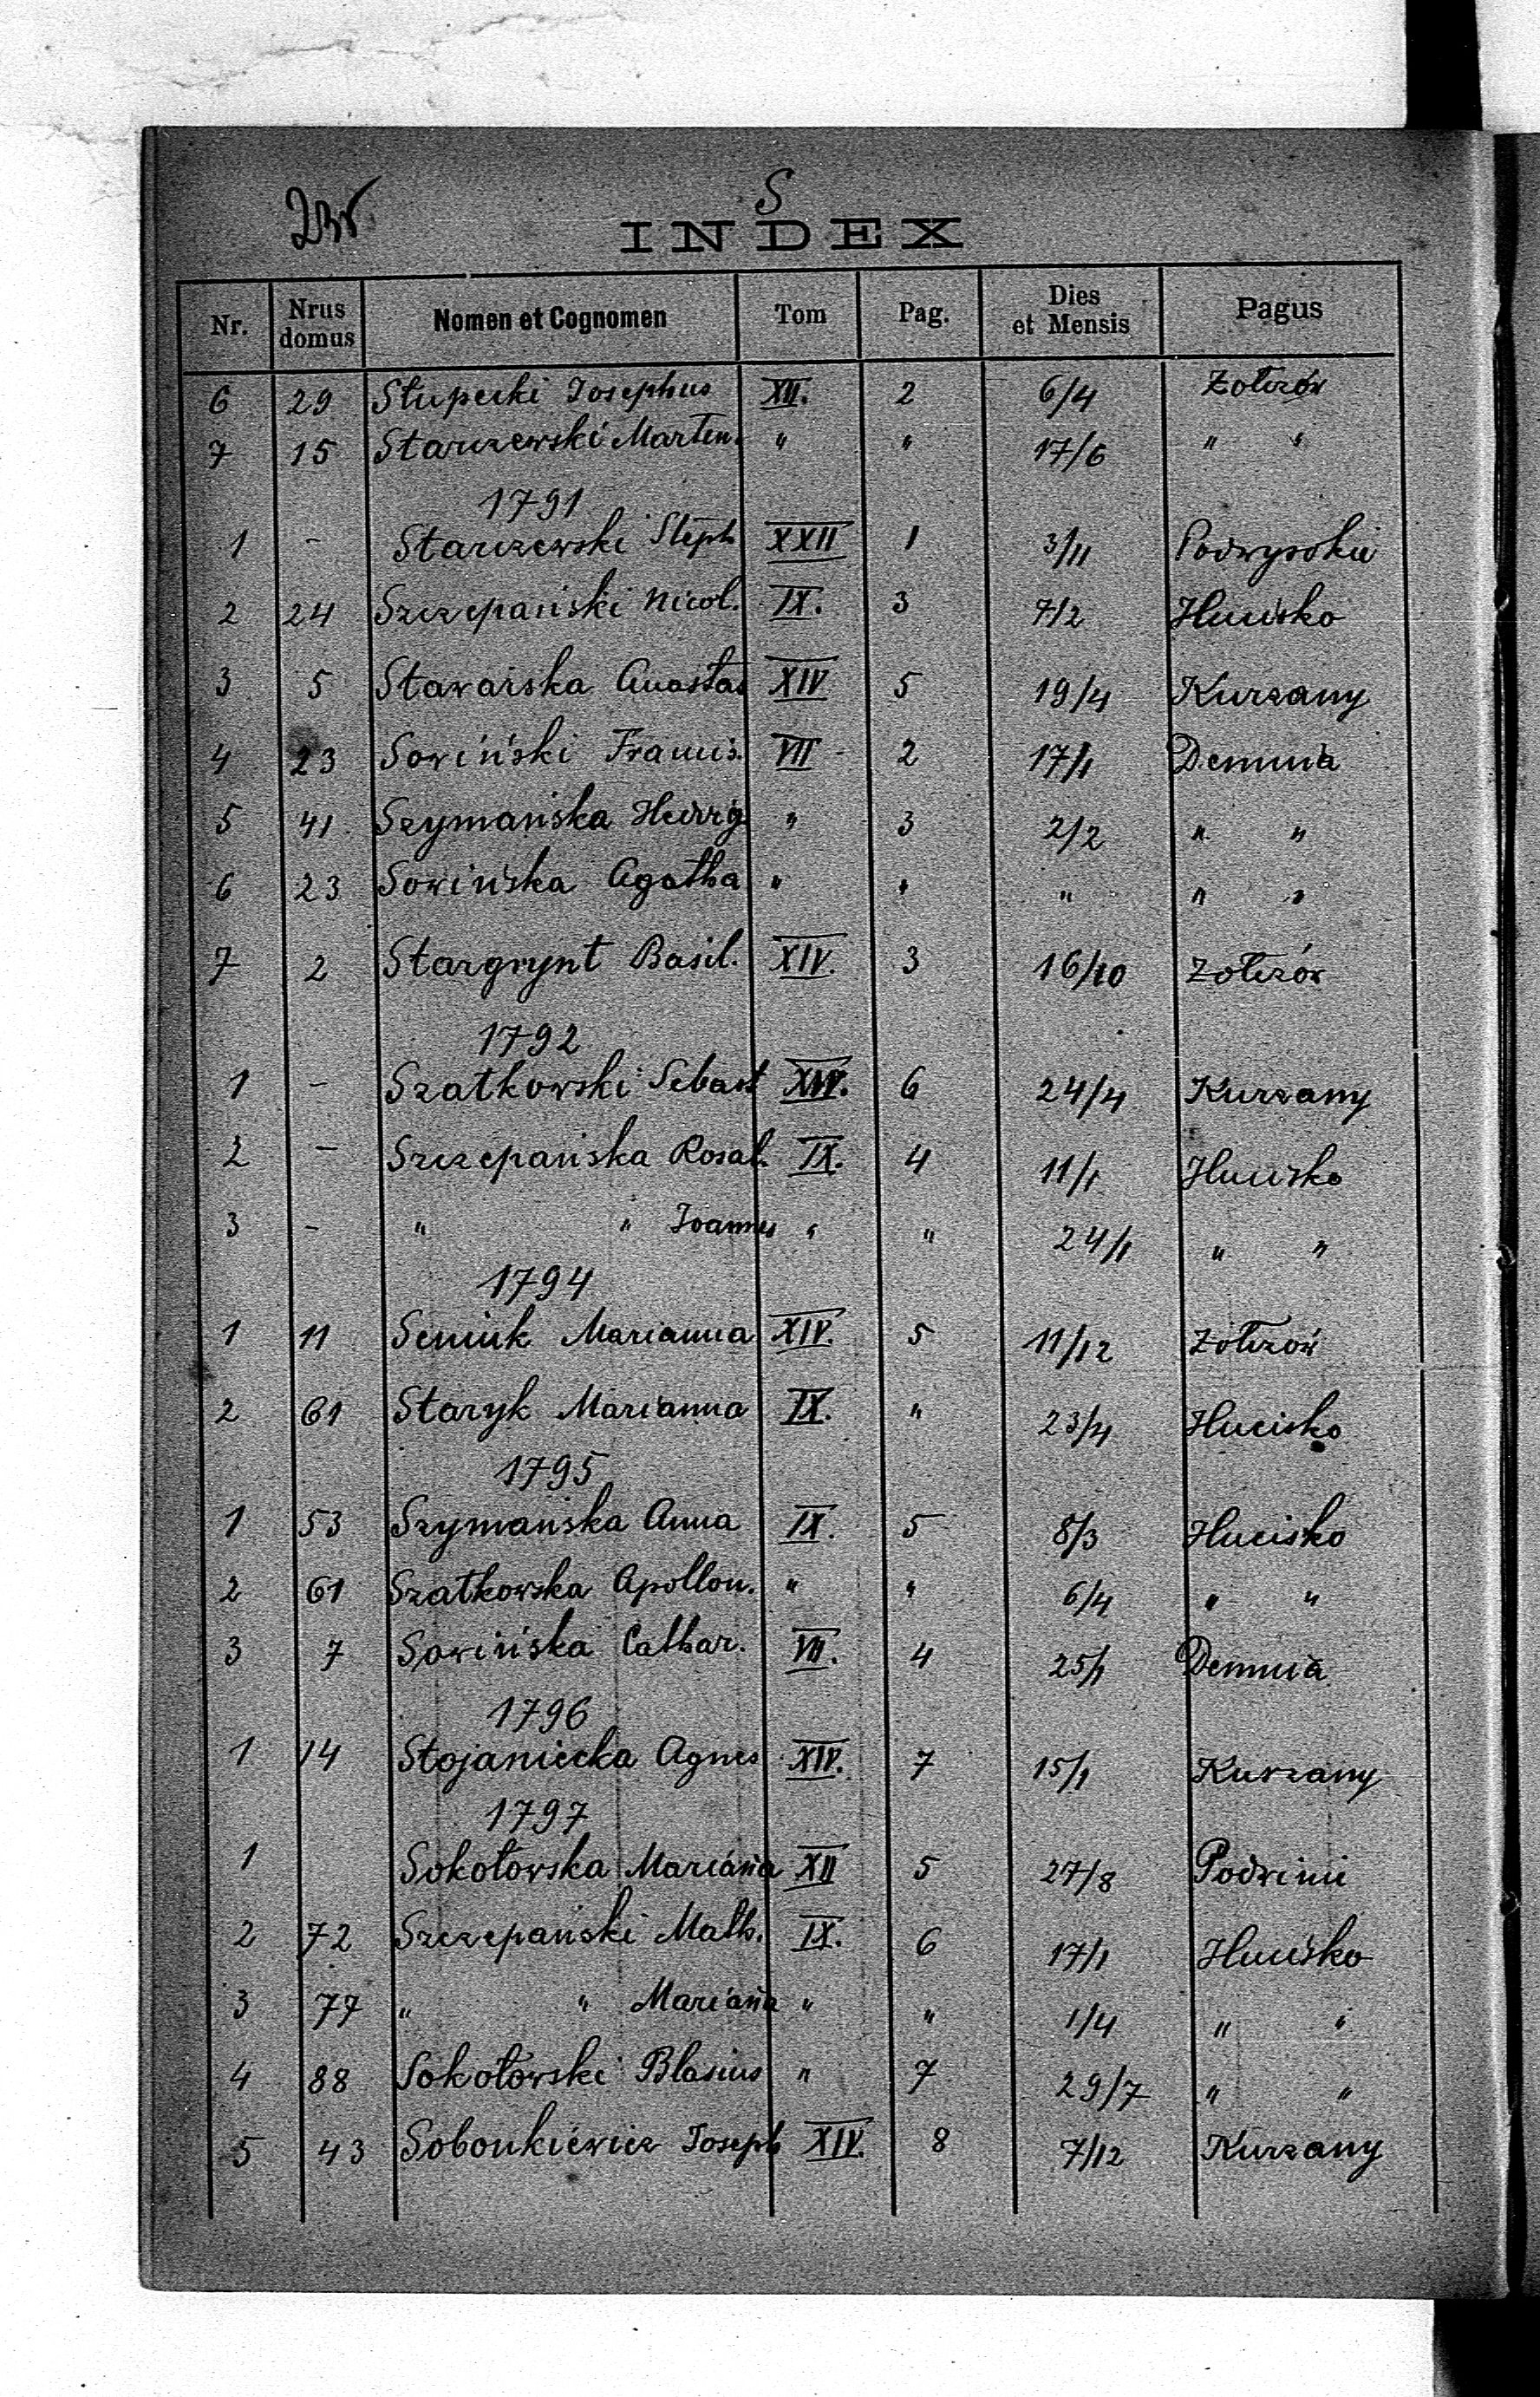 S
INDEX
Nr. Nrus domus Nomen et Cognomen Tom Pag. Dies et Mensis Pagus
6 29 Słupecki Josephus XII. 2 6/4 Żołczów
7 15 Starczewski Marten. " " 17/6 " "
1791
1 - Starczewski Steph XXII 1 3/11 Podwysokie
2 24 Szczepański Nicol. IX. 3 7/2 Hucisko
3 5 Stawarska Anastas XIV 5 19/4 Kurzany
4 23 Sowiński Francis. VII 2 17/1 Demnia
5 41 Szymańska Hedwig " 3 2/2 " "
6 23 Sowińska Agatha " " " " "
7 2 Stargrynt Basil. XIV. 3 16/10 Żołczów
1792
1 - Szatkowski Sebast XIV. 6 24/4 Kurzany
2 - Szczepańska Rosal. IX. 4 11/1 Hucisko
3 - " " Joannes " " 24/1 " "
1794
1 11 Seniuk Marianna XIV. 5 11/12 Żołczów
2 61 Staryk Marianna IX. " 23/4 Hucisko
1795
1 53 Szymańska Anna IX. 5 8/3 Hucisko
2 61 Szatkowska Apollon. " " 6/4 " "
3 7 Sowińska Cathar. VII. 4 25/1 Demnia
1796
1 14 Stojaniecka Agnes XIV. 7 15/1 Kurzany
1797
1 Sokołowska Mariana XII 5 27/8 Podwinie
2 72 Szczepański Math. IX. 6 17/1 Hucisko
3 77 " " Mariana " " 1/4 " "
4 88 Sokołowski Blasius " 7 29/7 " "
5 43 Sobonkiewicz Joseph XIV. 8 7/12 Kurzany